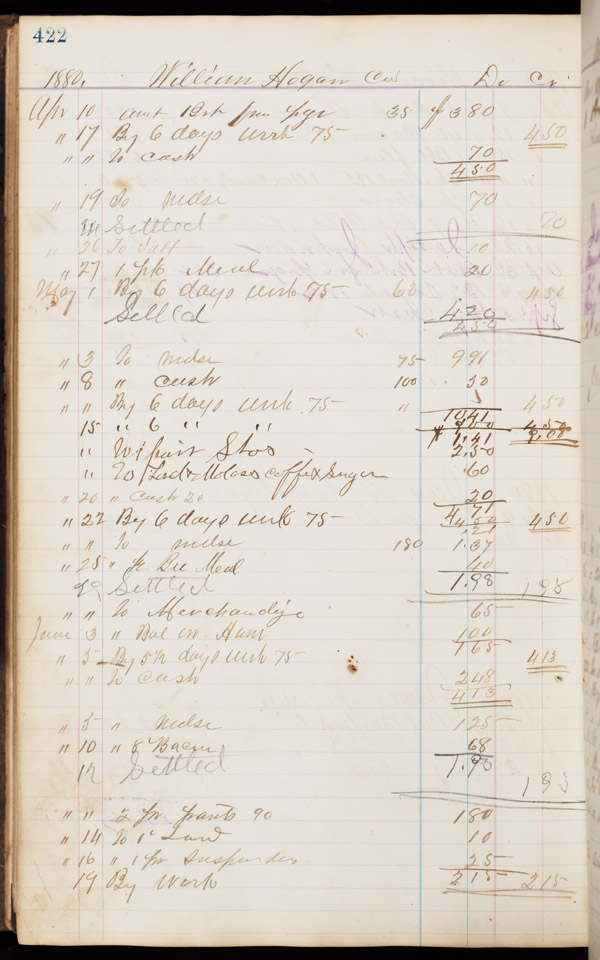 422
1880. William Hogan Dr Cr
Apr 10 amt Brt 35 $ 3 80
" 17 By 6 days work 75 4 50
" " To cash 70
4 50
19 To mdse 70
Settled 70
" 26 To Salt 10
" 27 1 pk Meal 20
May 1 By 6 days work 75 60 4 50
Settled 4 20
4 50
" 3 To mdse 75 9 91
" 8 " cash 100 50
" " By 6 days work 75 " 4 50
10 41
15 " 6 " " 4 50
9.00
1,41
" pair Shos 2,50
" To Lard & Molases coffe & Sugar 60
" 20 " Cash 20 20
4 71
" 22 By 6 days work 75 4 50 4 50
,21
" " To mdse 180 1.37
" 25 " Meal 40
29 Settled 1.98 1 98
" " To Merchandise 65
June 3 " Bal on Ham 100
1 65
" 5 By 5½ days work 75 4 13
" " To cash 2 48
4 13
" 5 " mdse 1 25
" 10 " 8 Bacon 68
12 Settled 1.93
1 93
" " 2 pr pants 90 1 80
" 14 To Lard 10
" 16 " 1 pr Suspenders 25
19 By Work 2 15 2 15